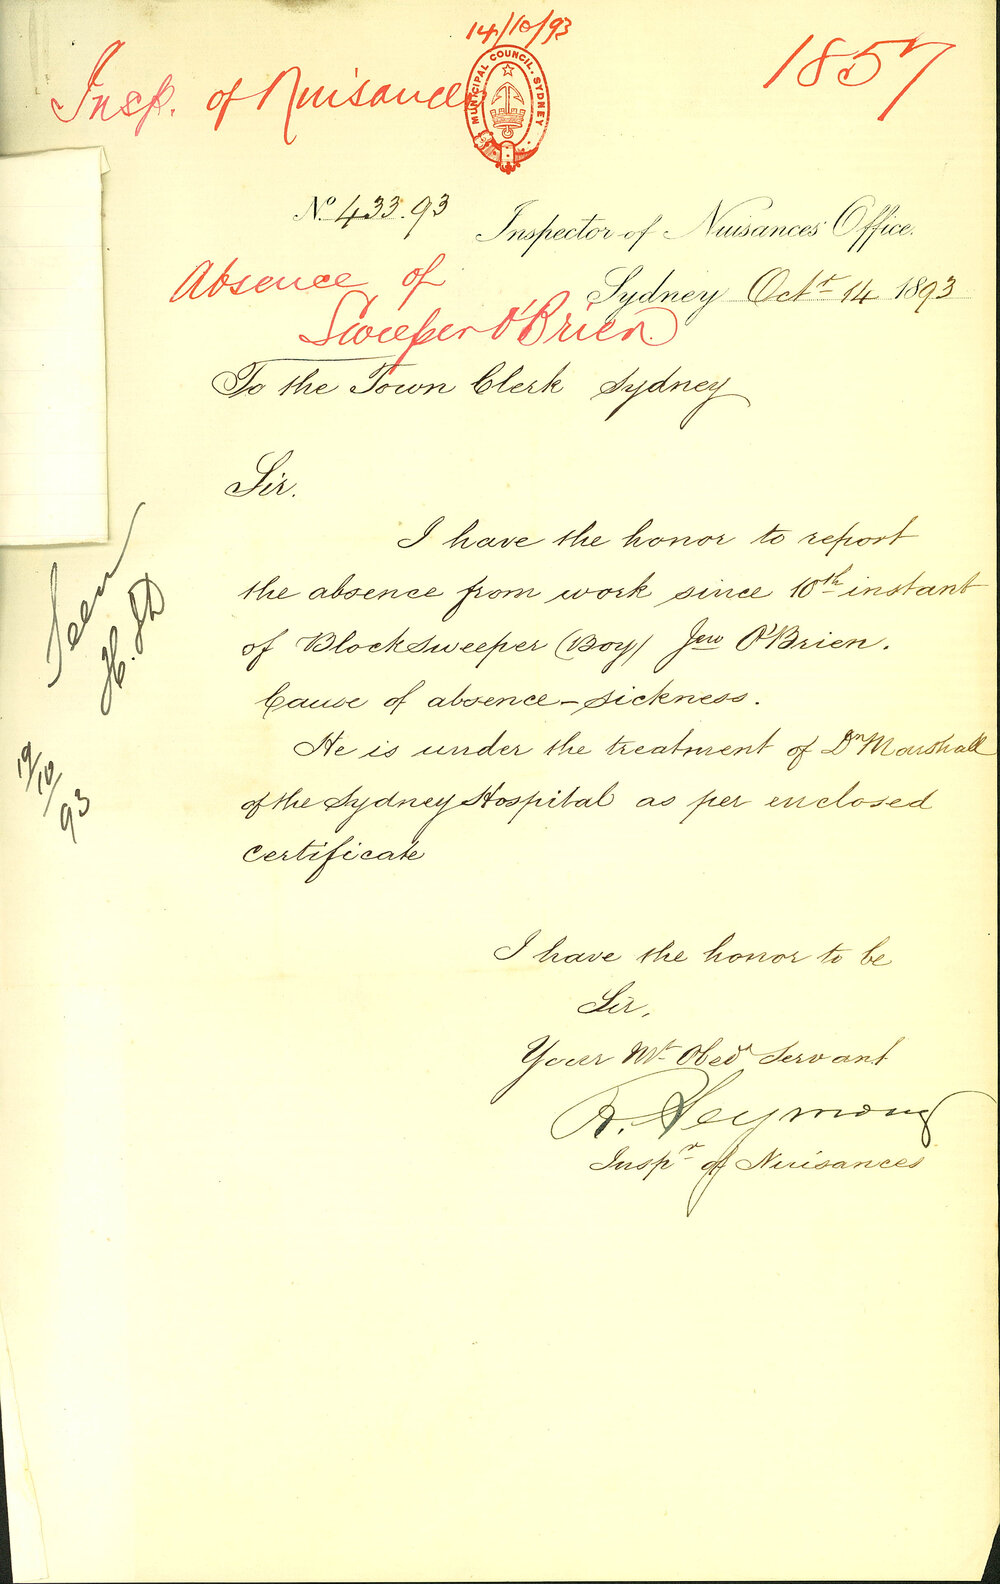 14/10/93
Insp. of Nuisances
1857
MUNICIPAL COUNCIL. SYDNEY
No. 433.93
Inspector of Nuisances' Office.
Absence of
Sweeper O'Brien.
Sydney Octr 14 1893
To the Town Clerk Sydney
Sir.
I have the honor to report
the absence from work since 10th instant
of Blocksweeper (Boy) O'Brien.
Cause of absence - sickness.
He is under the treatment of Dr Marshall
of the Sydney Hospital as per enclosed
certificate
Seen
19/10/93
I have the honor to be
Sir,
Your Mt Obedt Servant
R. Seymour
Inspr of Nuisances